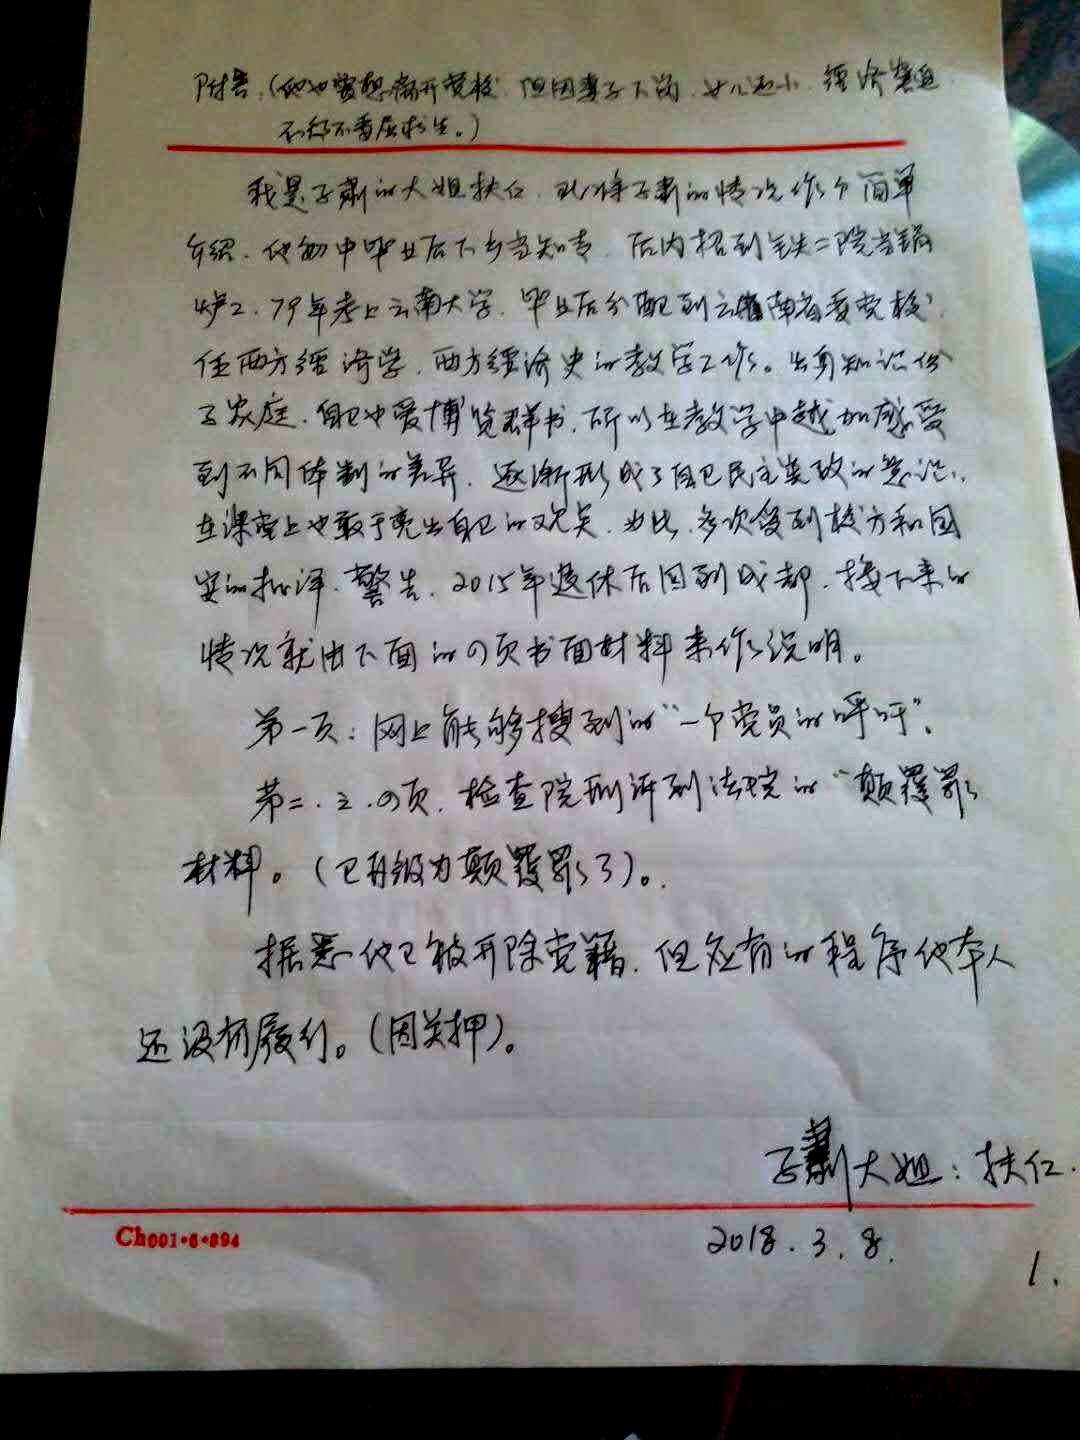 附告:(他也曾想离开党校,但因妻子下岗,女儿还小,经济窘迫
不得不委屈求生。)
我是子肃的大姐扶仁,现将子肃的情况作个简单
介绍,他初中毕业后下乡当知青,后内招到铁二院当锅
炉工,79年考上云南大学,毕业后分配到云南省委党校,
任西方经济学,西方经济史的教学工作。出身知识份
子家庭,自己也爱博览群书,所以在教学中越加感受
到不同体制的差异,逐渐形成了自己民主宪政的意识,
在课堂上也敢于亮出自己的观点,为此,多次受到校方和国
安的批评、警告,2015年退休后回到成都,接下来的
情况就由下面的四页书面材料来作说明。
第一页:网上能够搜到的“一个党员的呼吁”。
第二.三.四页,检查院刑诉到法院的“颠覆罪
材料。(已升级为颠覆罪了)。
据悉他已被开除党籍,但应有的程序他本人
还没有履行。(因关押)。
子肃大姐:扶仁.
2018.3.8.
Ch001·6·894
1.